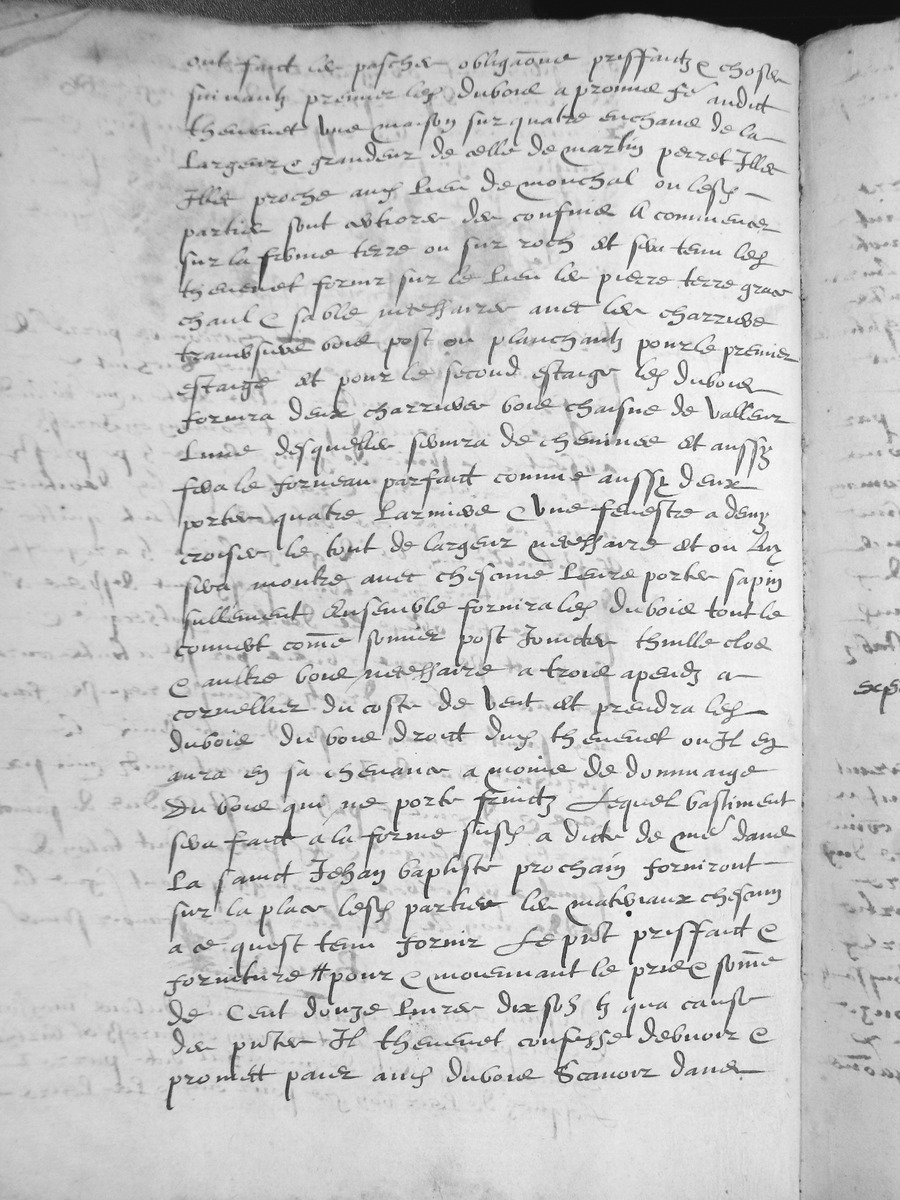 ont faict les pasches obliga͠ons prisffaictz & choses
suivantz premier led. duboys a promis fe audict
thevenet une maison sur quatre enchans de la
largeur & grandeur de celle de martin perret Illec
Illec proche aud. lieu de monchal ou lesd.
parties sont des confins A commencer
sur la ferme terre ou sur roch et sera tenu led.
thevenet fornir sur le lieu les pierre terre grace
chaul & sable necessaires avec les charrives
boys post ou planchantz pour le premier
estaige et pour le second estaige led. duboys
fornira deux charrives boys chaisne de valleur
l'une desquelles servira de cheminee et aussy
fera le forneau parfaict comme aussy deux
portes quatre larmiers & une fenestre a demy
croisee le tout de largeur necessaire et ou luy
sera monstre avec chescune leurs portes sapin
sullement Ensemble fornira led. duboys tout le
couvert com͠e somier post Joinctes thuille clos
& aultre boys necessaire a trois apendz a
du coste de vent et prendra led.
duboys du boys droict dud. thevenet ou Il en
aura en sa chevance a moins de dommaige
Du boys qui ne porte fruictz Lequel bastiment
sera faict a la forme susd. a dicte de me͠ dans
La sainct Jehan baptiste prochain forniront
sur la place lesd. parties les materiaux chescun
a ce quest tenu fornir Le p͠nt prisffaict &
forniture # pour & moiennant le pris & som͠e
de Cent douze livres dix solz tz qua cause
des p͠ntes Il thevenet confesse debvoir &
promett paier aud. duboys Scavoir dans